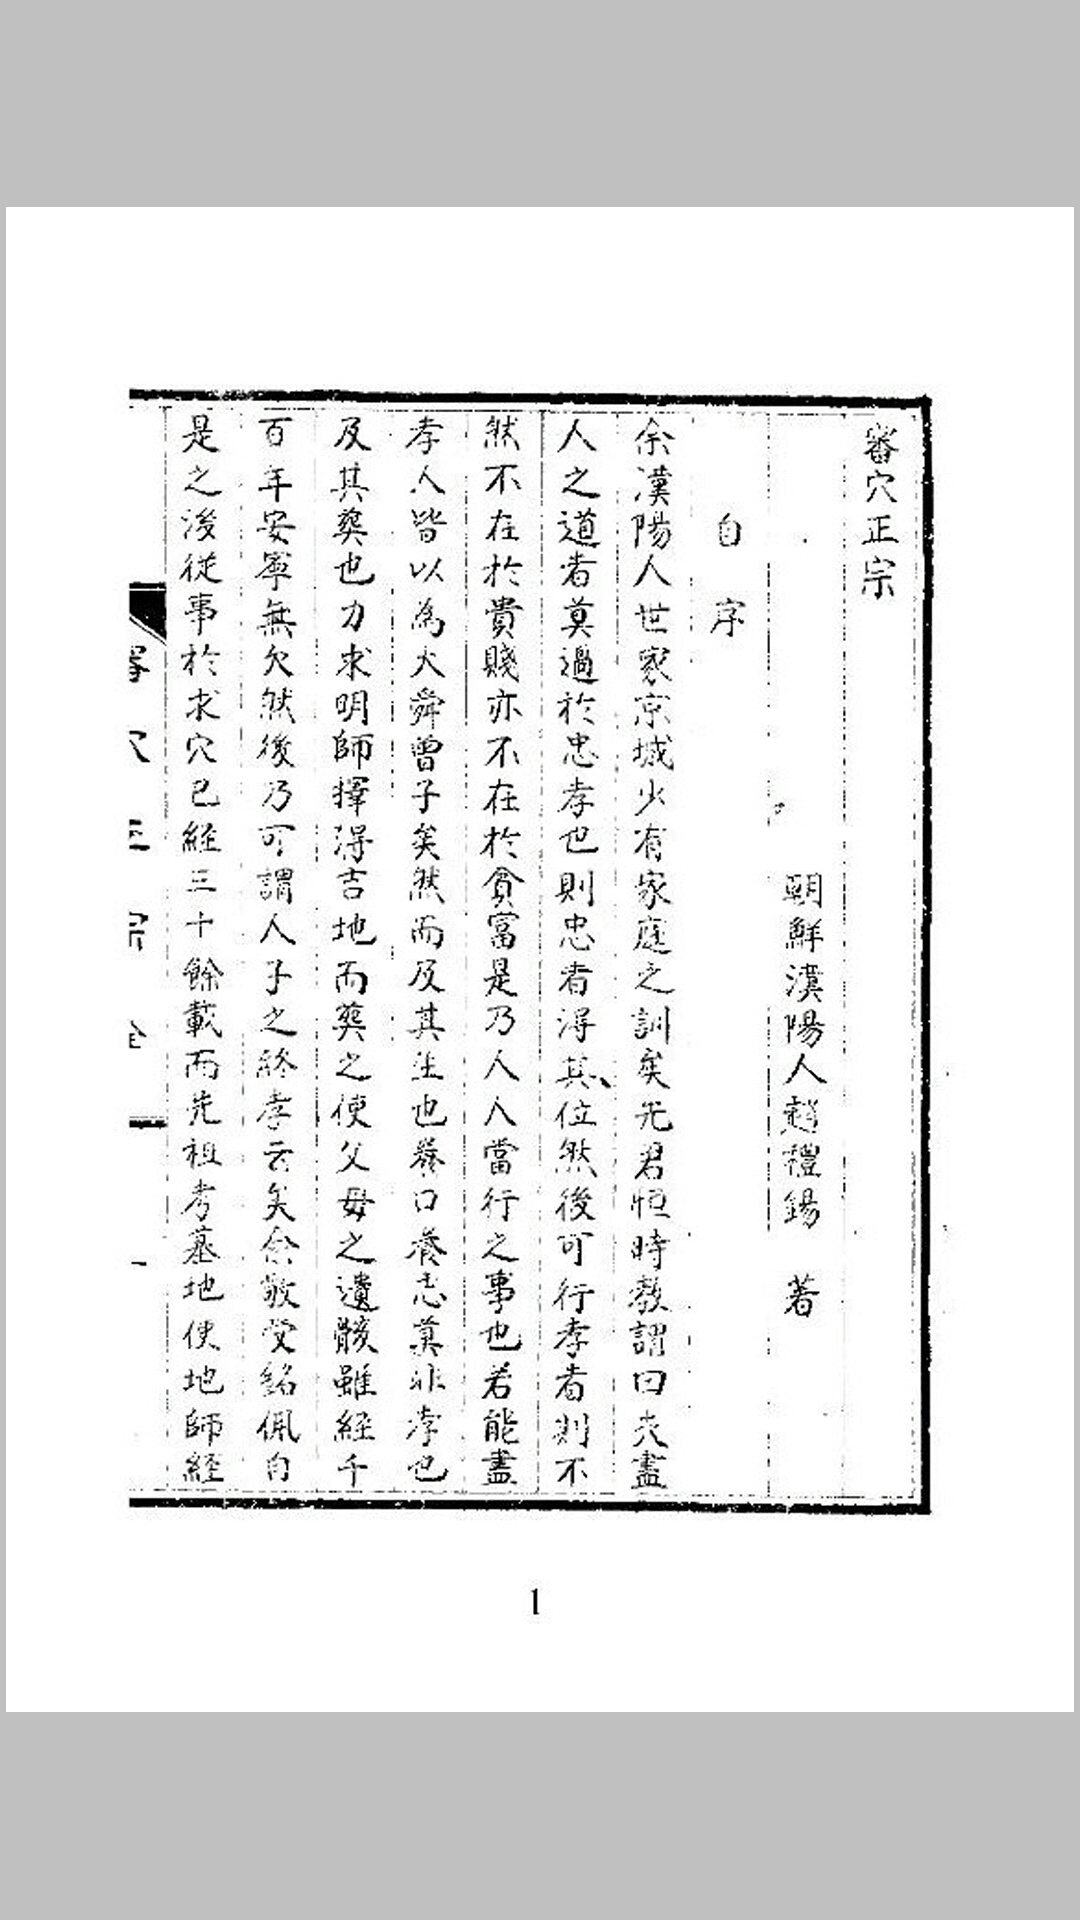 審穴正宗
朝鮮漢陽人趙禮錫 著
自序
余漢陽人世家京城少有家庭之訓矣先君恒時教謂曰夫盡
人之道者莫過於忠孝也則忠者得其位然後可行孝者則不
然不在於貴賤亦不在於貧富是乃人人當行之事也若能盡
孝人皆以為大舜曾子矣然而及其生也養口養志莫非孝也
及其葬也力求明師擇得吉地而葬之使父母之遺骸雖經千
百年安寧無欠然後乃可謂人子之終孝云矣余敬受銘佩自
是之後從事於求穴已經三十餘載而先祖考墓地使地師經
審穴正宗 全 一
1